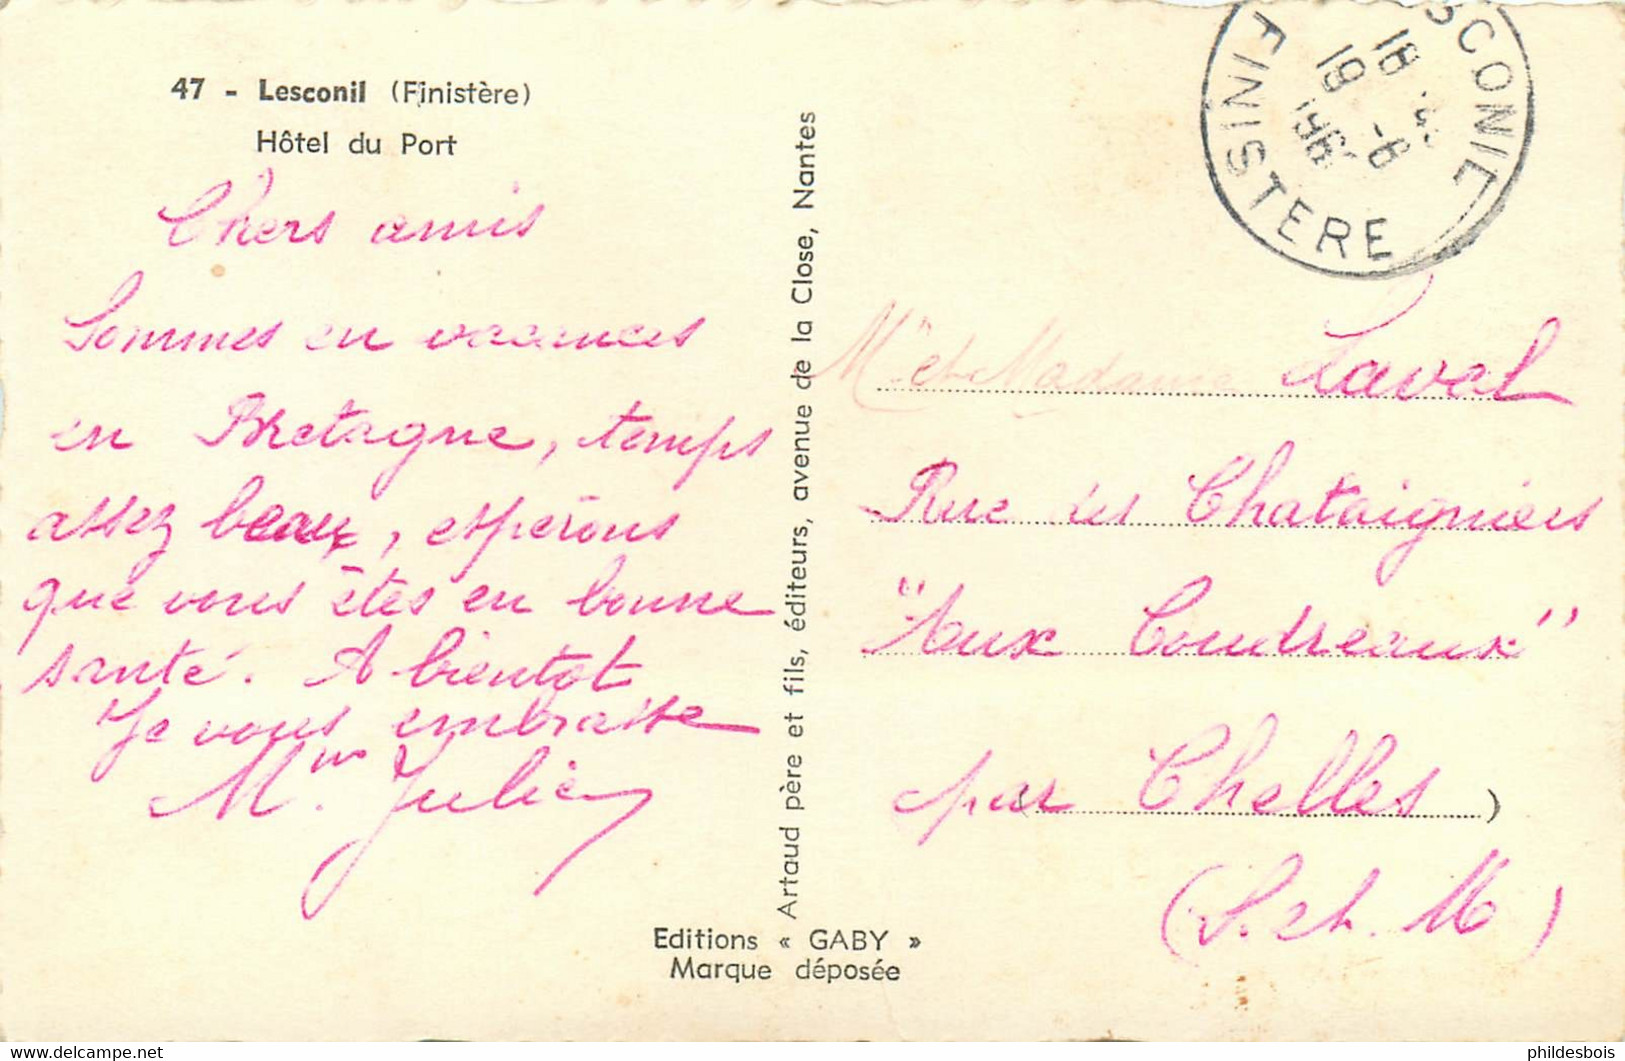 47 - Lesconil (Finistère)
Hôtel du Port
Chers amis
Sommes en vacances
en Bretagne, temps
assez beau, espérons
que vous êtes en bonne
santé. A bientot
Je vous embrasse
Mme Julien
Artaud père et fils, éditeurs, avenue de la Close, Nantes
Editions « GABY »
Marque déposée
SCONIL
FINISTERE
18
19 -6
196
Mr et Madame Laval
Rue des Chataigniers
"Aux Coudreaux"
par Chelles
(S. et. M)
phildesbois